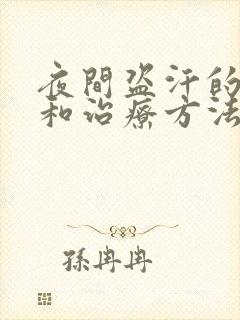 夜間盜汗的
和治療方法
孫冉冉